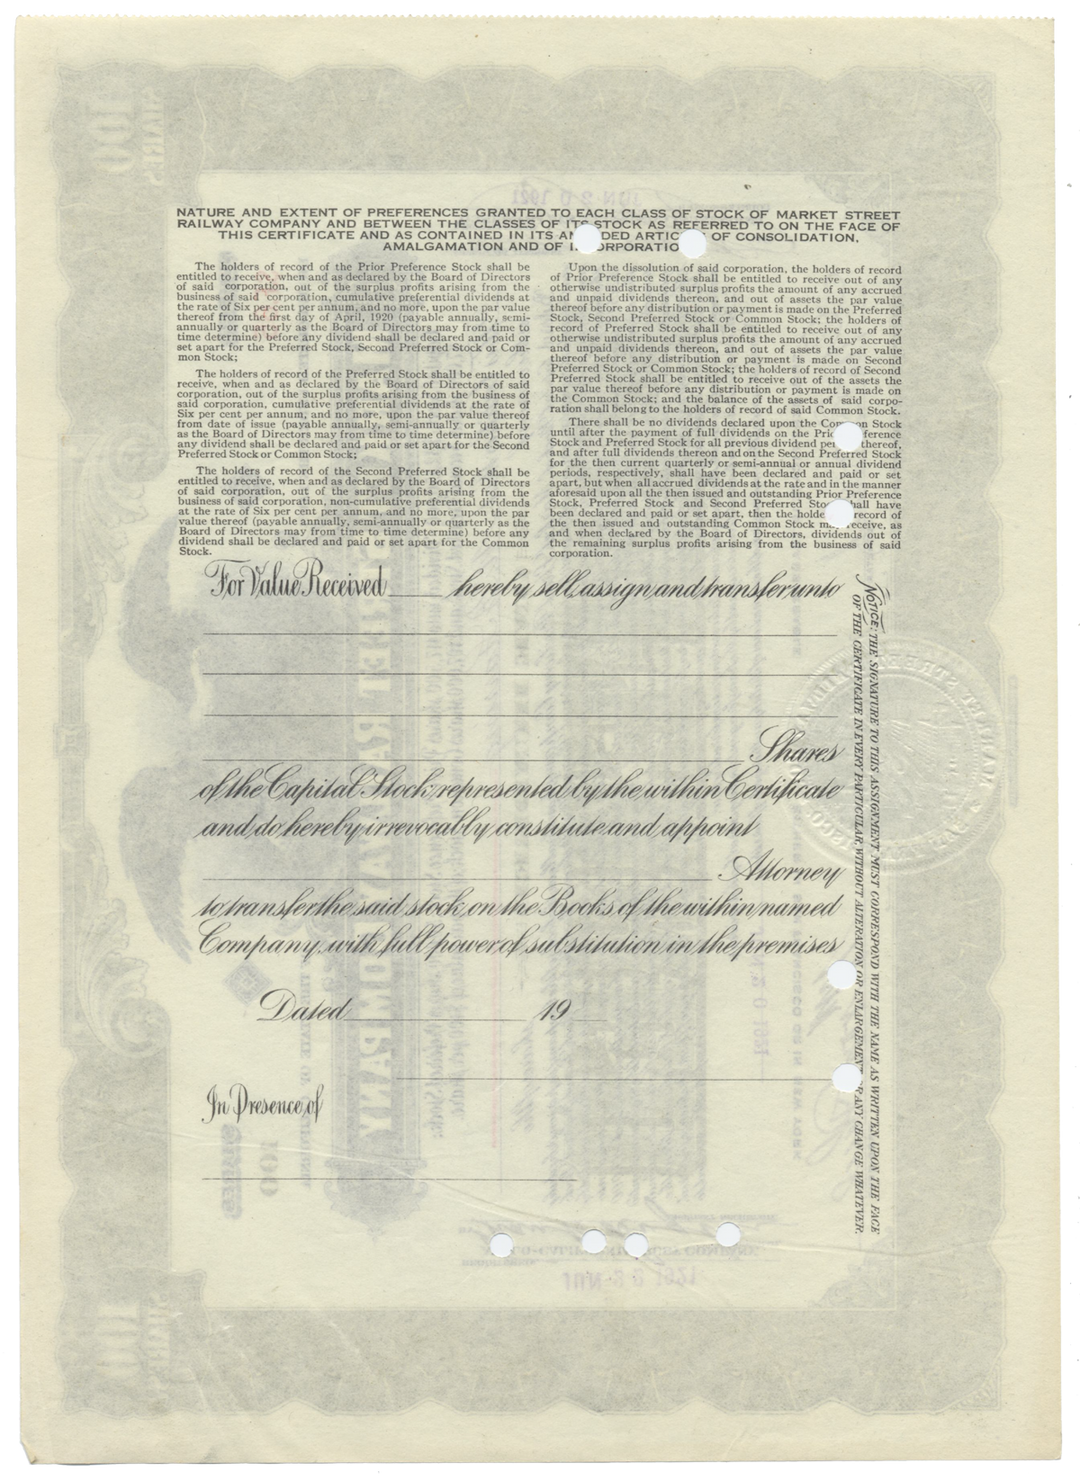 NATURE AND EXTENT OF PREFERENCES GRANTED TO EACH CLASS OF STOCK OF MARKET STREET
RAILWAY COMPANY AND BETWEEN THE CLASSES OF ITS STOCK AS REFERRED TO ON THE FACE OF
THIS CERTIFICATE AND AS CONTAINED IN ITS AM DED ARTIC S OF CONSOLIDATION,
AMALGAMATION AND OF I ORPORATIO
The holders of record of the Prior Preference Stock shall be
entitled to receive, when and as declared by the Board of Directors
of said corporation, out of the surplus profits arising from the
business of said corporation, cumulative preferential dividends at
the rate of Six per cent per annum, and no more, upon the par value
thereof from the first day of April, 1920 (payable annually, semi-
annually or quarterly as the Board of Directors may from time to
time determine) before any dividend shall be declared and paid or
set apart for the Preferred Stock, Second Preferred Stock or Com-
mon Stock;
The holders of record of the Preferred Stock shall be entitled to
receive, when and as declared by the Board of Directors of said
corporation, out of the surplus profits arising from the business of
said corporation, cumulative preferential dividends at the rate of
Six per cent per annum, and no more, upon the par value thereof
from date of issue (payable annually, semi-annually or quarterly
as the Board of Directors may from time to time determine) before
any dividend shall be declared and paid or set apart for the Second
Preferred Stock or Common Stock;
The holders of record of the Second Preferred Stock shall be
entitled to receive, when and as declared by the Board of Directors
of said corporation, out of the surplus profits arising from the
business of said corporation, non-cumulative preferential dividends
at the rate of Six per cent per annum, and no more, upon the par
value thereof (payable annually, semi-annually or quarterly as the
Board of Directors may from time to time determine) before any
dividend shall be declared and paid or set apart for the Common
Stock.
Upon the dissolution of said corporation, the holders of record
of Prior Preference Stock shall be entitled to receive out of any
otherwise undistributed surplus profits the amount of any accrued
and unpaid dividends thereon, and out of assets the par value
thereof before any distribution or payment is made on the Preferred
Stock, Second Preferred Stock or Common Stock; the holders of
record of Preferred Stock shall be entitled to receive out of any
otherwise undistributed surplus profits the amount of any accrued
and unpaid dividends thereon, and out of assets the par value
thereof before any distribution or payment is made on Second
Preferred Stock or Common Stock; the holders of record of Second
Preferred Stock shall be entitled to receive out of the assets the
par value thereof before any distribution or payment is made on
the Common Stock; and the balance of the assets of said corpo-
ration shall belong to the holders of record of said Common Stock.
There shall be no dividends declared upon the Common Stock
until after the payment of full dividends on the Prior ference
Stock and Preferred Stock for all previous dividend per thereof,
and after full dividends thereon and on the Second Preferred Stock
for the then current quarterly or semi-annual or annual dividend
periods, respectively, shall have been declared and paid or set
apart, but when all accrued dividends at the rate and in the manner
aforesaid upon all the then issued and outstanding Prior Preference
Stock, Preferred Stock and Second Preferred Stock hall have
been declared and paid or set apart, then the holde record of
the then issued and outstanding Common Stock m receive, as
and when declared by the Board of Directors, dividends out of
the remaining surplus profits arising from the business of said
corporation.
For Value Received hereby sell, assign and transfer unto
Shares
of the Capital Stock represented by the within Certificate
and do hereby irrevocably constitute and appoint
Attorney
to transfer the said stock on the Books of the within named
Company, with full power of substitution in the premises
Dated 19
In Presence of
NOTICE: THE SIGNATURE TO THIS ASSIGNMENT MUST CORRESPOND WITH THE NAME AS WRITTEN UPON THE FACE
OF THE CERTIFICATE IN EVERY PARTICULAR, WITHOUT ALTERATION OR ENLARGEMENT OR ANY CHANGE WHATEVER.